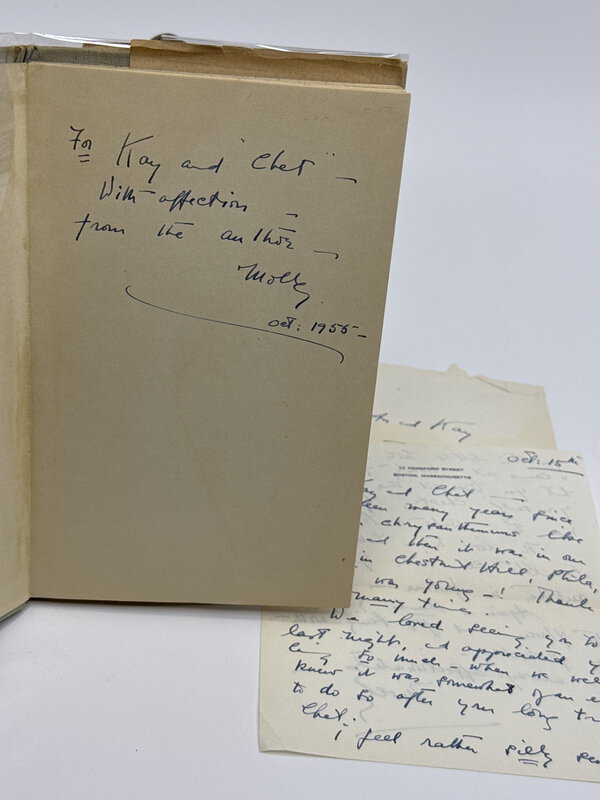 For Kay and "Chet" —
With affection —
from the author —
Molly
Oct: 1955 —
and Kay
Oct: 15th
12 HEREFORD STREET
BOSTON, MASSACHUSETTS
Chet —
many years since
chrysanthemums like
then it was in an
in Chestnut Hill, Phila,
was young —! Thank
many times.
We loved seeing you
last night, appreciated
so much — when we
knew it was somewhat of an
to do so after your long
Chet; I feel rather silly